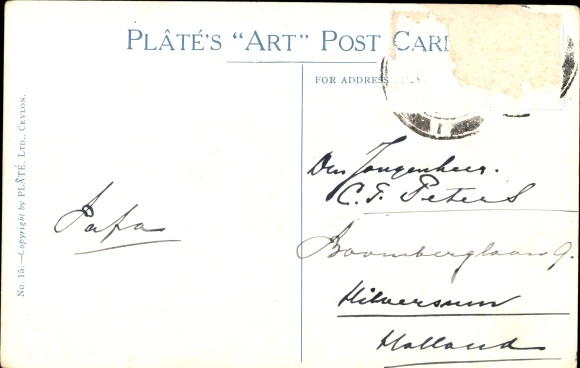 PLÂTÉ'S "ART" POST CAR
FOR ADDRESS
No. 15.—Copyright by PLÂTÉ, LTD., CEYLON.
Papa
Den Jongenheer.
C. F. Peters
Boomberglaan 9.
Hilversum
Holland